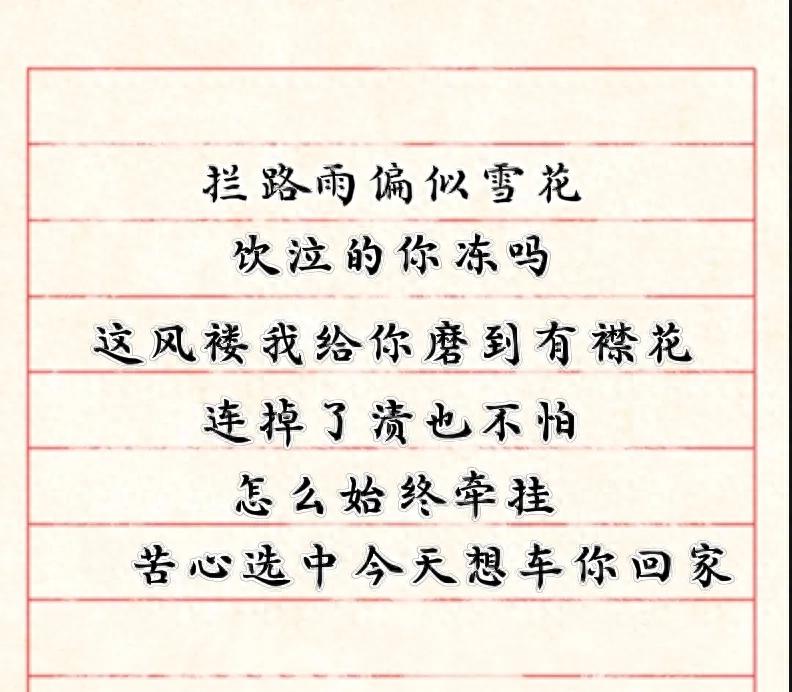 拦路雨偏似雪花
饮泣的你冻吗
这风褛我给你磨到有襟花
连掉了渍也不怕
怎么始终牵挂
苦心选中今天想车你回家